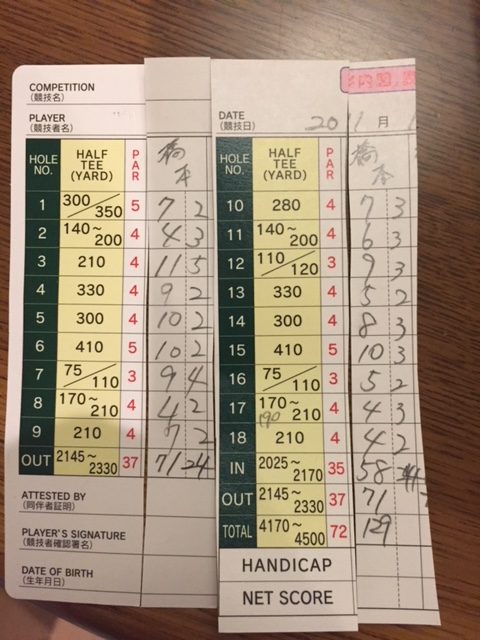 COMPETITION
(競技名)
PLAYER
(競技者名)
HOLE NO. HALF TEE (YARD) PAR 橋本
1 300/350 5 7 2
2 140~200 4 4 3
3 210 4 11 5
4 330 4 9 2
5 300 4 10 2
6 410 5 10 2
7 75/110 3 9 4
8 170~210 4 4 2
9 210 4 7 2
OUT 2145~2330 37 71 24
ATTESTED BY
(同伴者証明)
PLAYER'S SIGNATURE
(競技者確認署名)
DATE OF BIRTH
(生年月日)
DATE
(競技日) 20 11月
HOLE NO. HALF TEE (YARD) PAR 橋本
10 280 4 7 3
11 140~200 4 6 3
12 110/120 3 9 3
13 330 4 5 2
14 300 4 8 3
15 410 5 10 3
16 75/110 3 5 2
17 170~210 190 4 4 3
18 210 4 4 2
IN 2025~2170 35 58
OUT 2145~2330 37 71
TOTAL 4170~4500 72 129
HANDICAP
NET SCORE